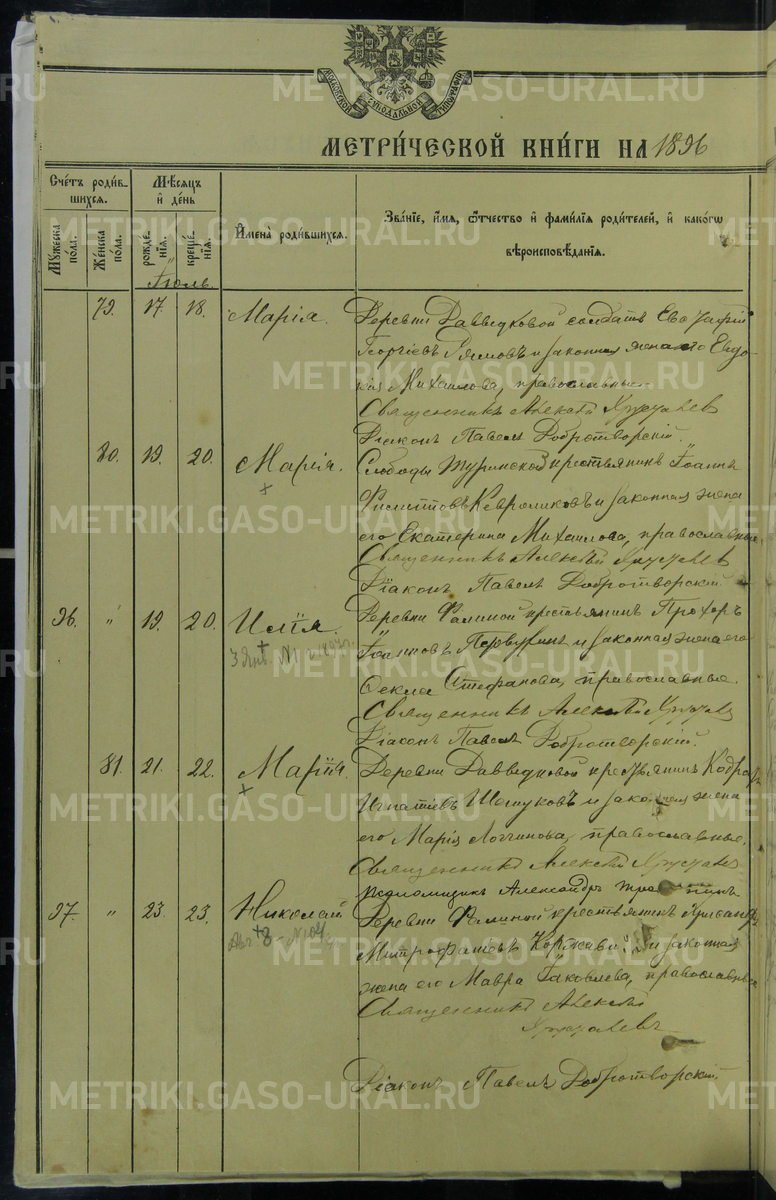 МОСКОВСКОЙ СѴНОДАЛЬНОЙ ТИПОГРАФІИ
МЕТРИ́ЧЕСКОЙ КНИ́ГИ НА 1896
Сче́тъ роди́в-
шихся.
Мѣ́сяцъ
и҆ де́нь
Му́жеска
по́ла.
Же́нска
по́ла.
рожде́-
нїя.
креще́-
нїя.
И҆мена̀ роди́вшихся.
Зва́нїе, и҆́мя, ѻ҆́тчество и҆ фами́лїя роди́телей, и҆ како́гѡ
вѣроисповѣ́данїя.
Іюль.
79. 17 18. Марія. Деревни Давыдковой солдатъ
Георгіевъ и законная жена его Евдо-
кія Михаилова, православные.
Священникъ Алексѣй Хрусталев
Діаконъ Павелъ Добротворскій.
80. 19. 20. Марія. Слободы Туринской крестьянинъ Іоаннъ
Филипповъ и законная жена
его Екатерина Михаилова, православные
Священникъ Алексѣй Хрусталев
Діаконъ Павелъ Добротворскій
96. " 19 20. Илія. Деревни Фалиной крестьянинъ Прохоръ
Іоанновъ Первухинъ и законная жена его
Ѳекла Стефанова, православные.
Священникъ Алексѣй
Діаконъ Павелъ Добротворскій.
81. 21. 22. Марія. Деревни Давыдковой крестьянинъ
Игнатіевъ Шешуковъ и законная жена
его Марія Логгинова, православные.
Священникъ Алексѣй
Псаломщикъ Александръ
97. " 23. 23. Николай Деревни Фалиной крестьянинъ
Митрофановъ и законная
жена его Мавра Іаковлева, православные
Священникъ Алексѣй
Хрусталевъ
Діаконъ Павелъ Добротворскій.
METRIKI.GASO-URAL.RU